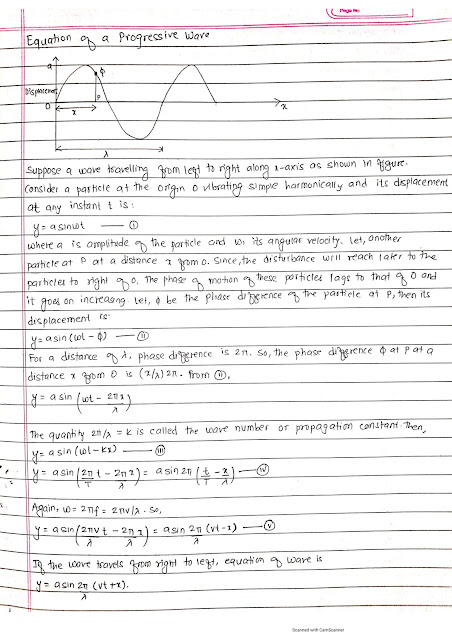 Page No.
Equation of a Progressive Wave
a
ϕ
Displacement
P
O
x
x
λ
Suppose a wave travelling from left to right along x-axis as shown in figure.
Consider a particle at the origin O vibrating simple harmonically and its displacement
at any instant t is:
y = a sinωt —— (i)
where a is amplitude of the particle and ω, its angular velocity. Let, another
particle at P at a distance x from O. Since, the disturbance will reach later to the
particles to right of O, the phase of motion of these particles lags to that of O and
it goes on increasing. Let, ϕ be the phase difference of the particle at P, then its
displacement is:
y = a sin (ωt - ϕ) —— (ii)
For a distance of λ, phase difference is 2π. So, the phase difference ϕ at P at a
distance x from O is (x/λ) 2π. From (ii),
y = a sin (ωt - 2πx/λ)
The quantity 2π/λ = k is called the wave number or propagation constant. Then,
y = a sin (ωt - kx) —— (iii)
y = a sin (2π/T t - 2π x/λ) = a sin 2π (t/T - x/λ) —— (iv)
Again, ω = 2πf = 2πv/λ. So,
y = a sin (2πv t/λ - 2π x/λ) = a sin 2π/λ (vt - x) —— (v)
If the wave travels from right to left, equation of wave is
y = a sin 2π/λ (vt + x).
Scanned with CamScanner